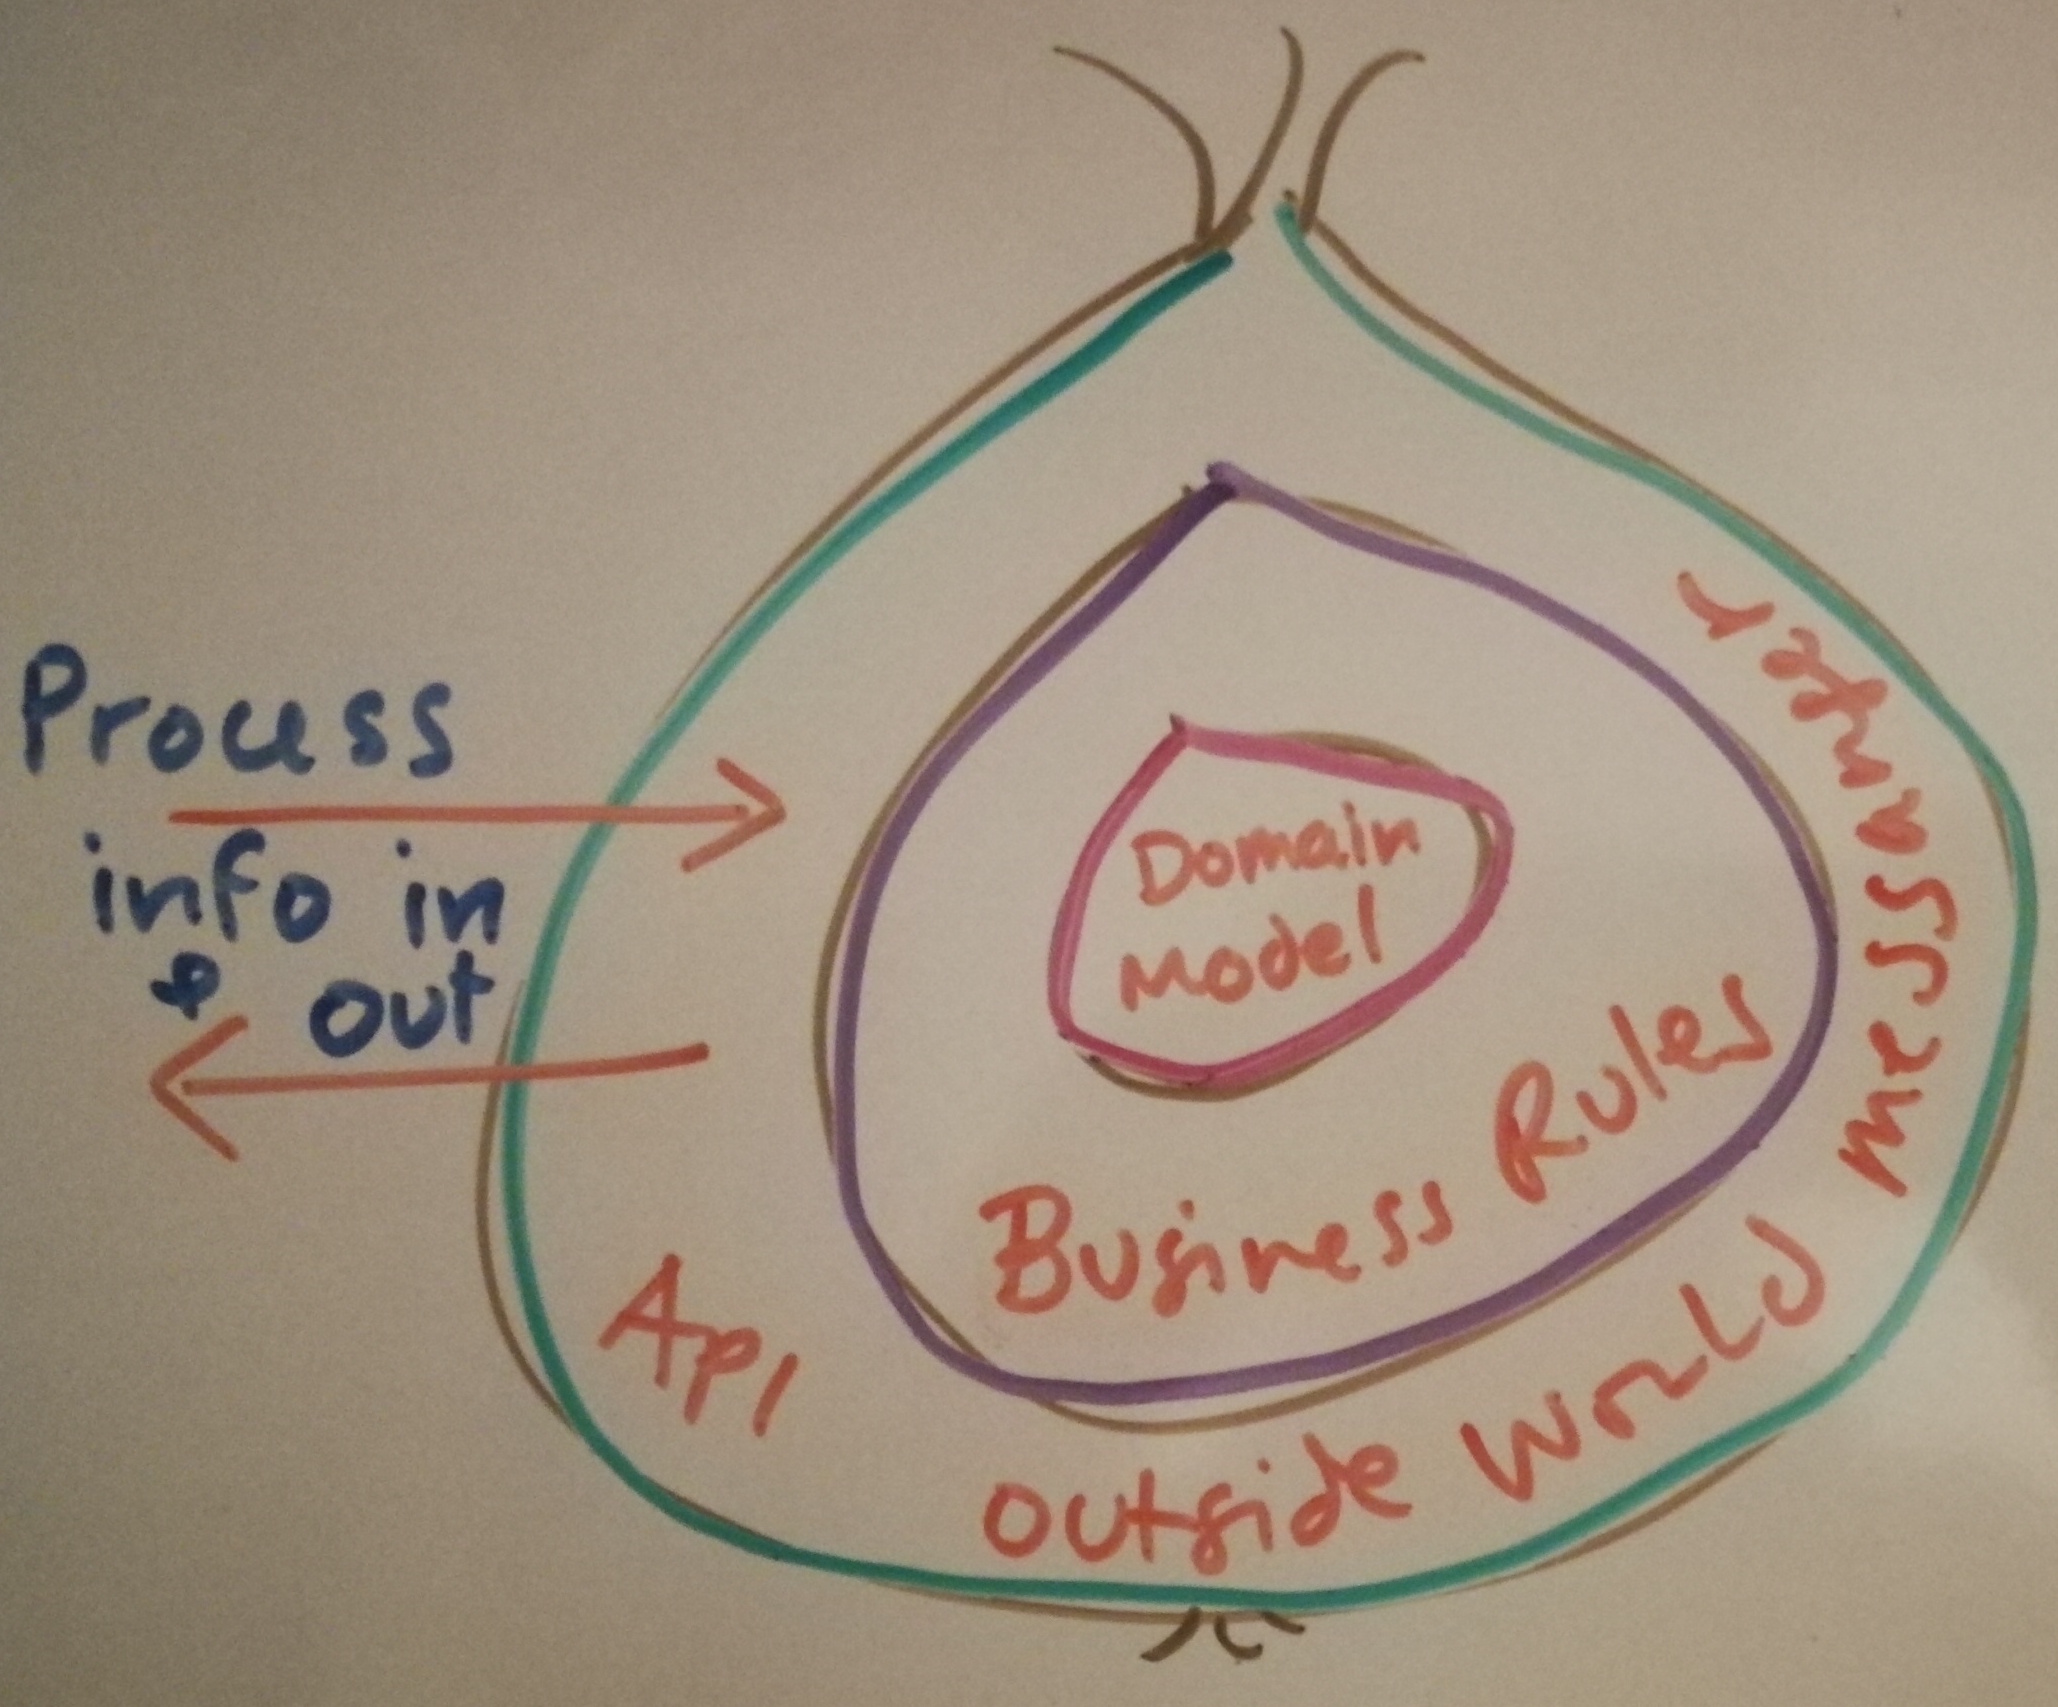 Process
info in
& out
Domain
Model
Business Rules
API
outside World
messager